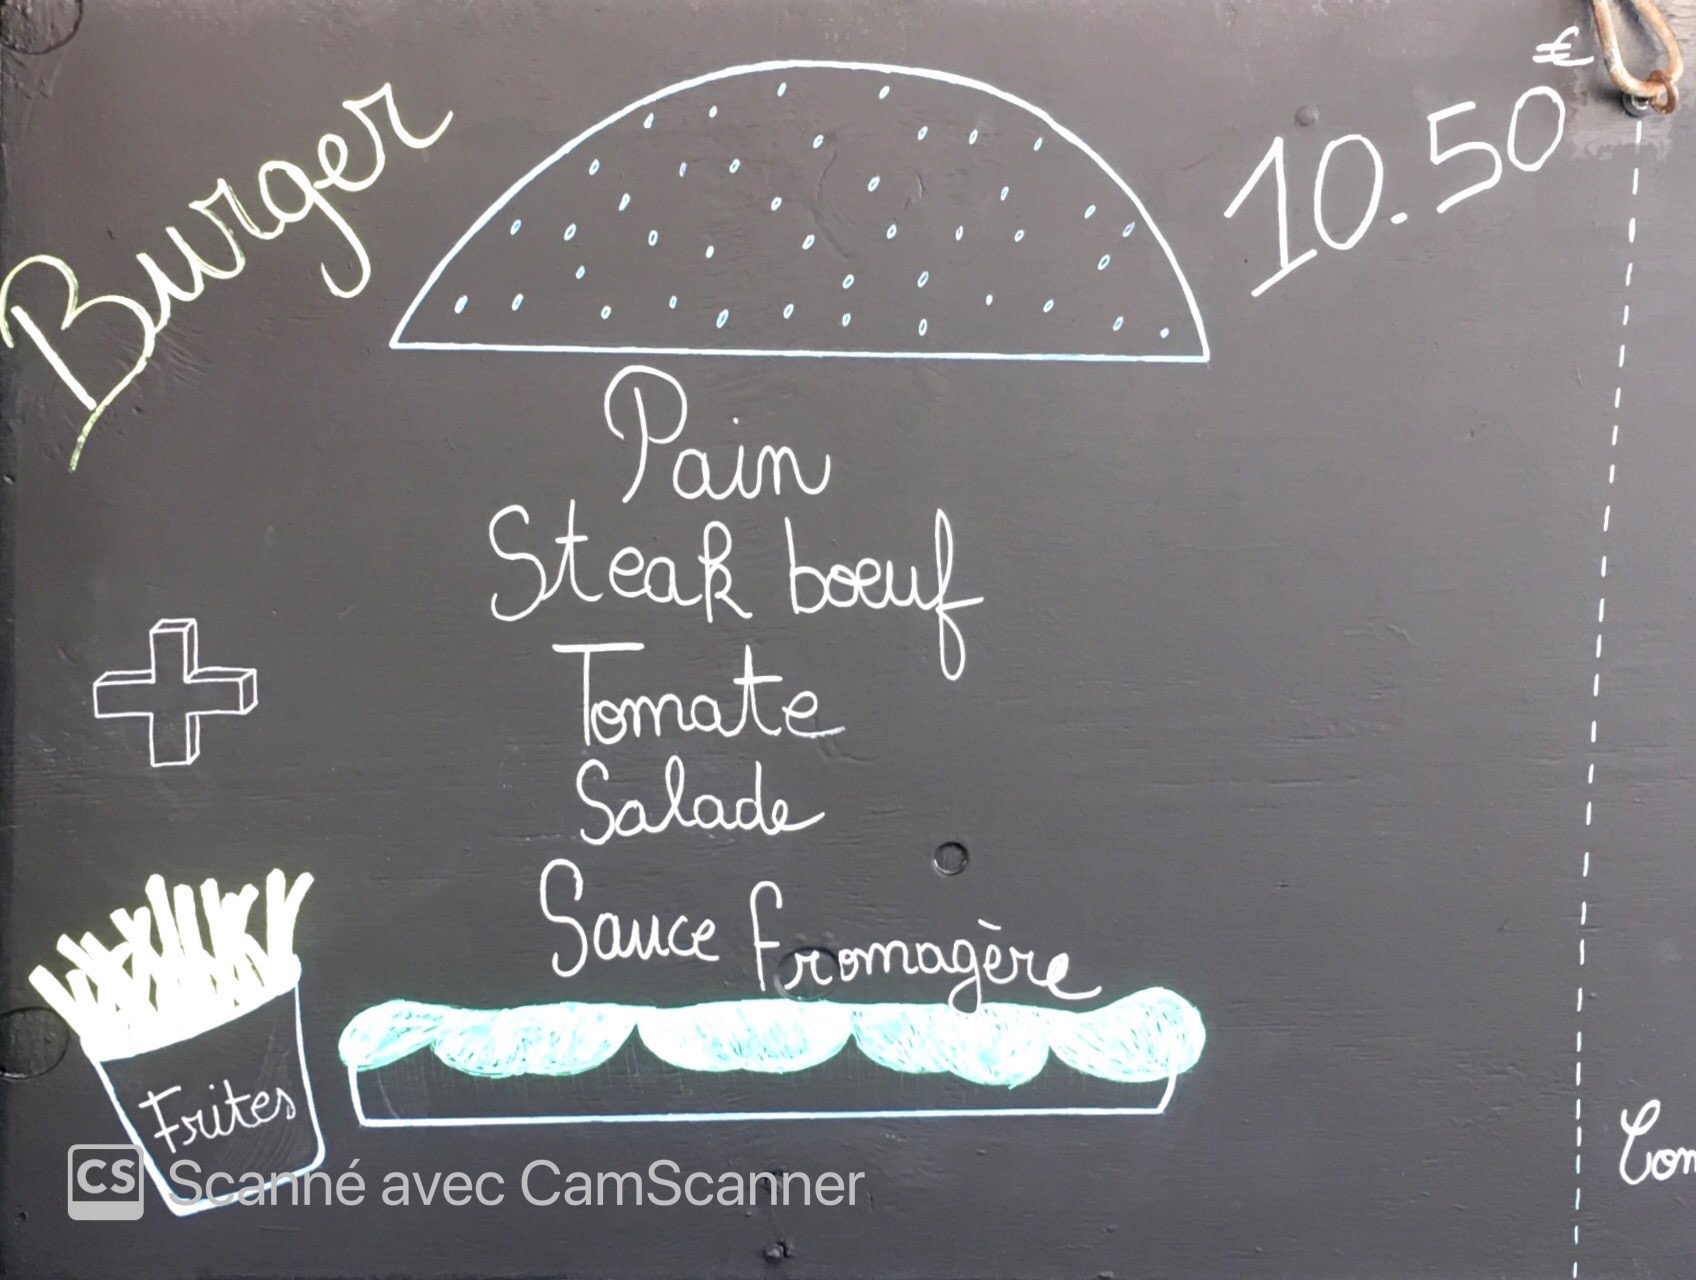 Burger
10.50 €
Pain
Steak boeuf
Tomate
Salade
Sauce fromagère
Frites
CS Scanné avec CamScanner